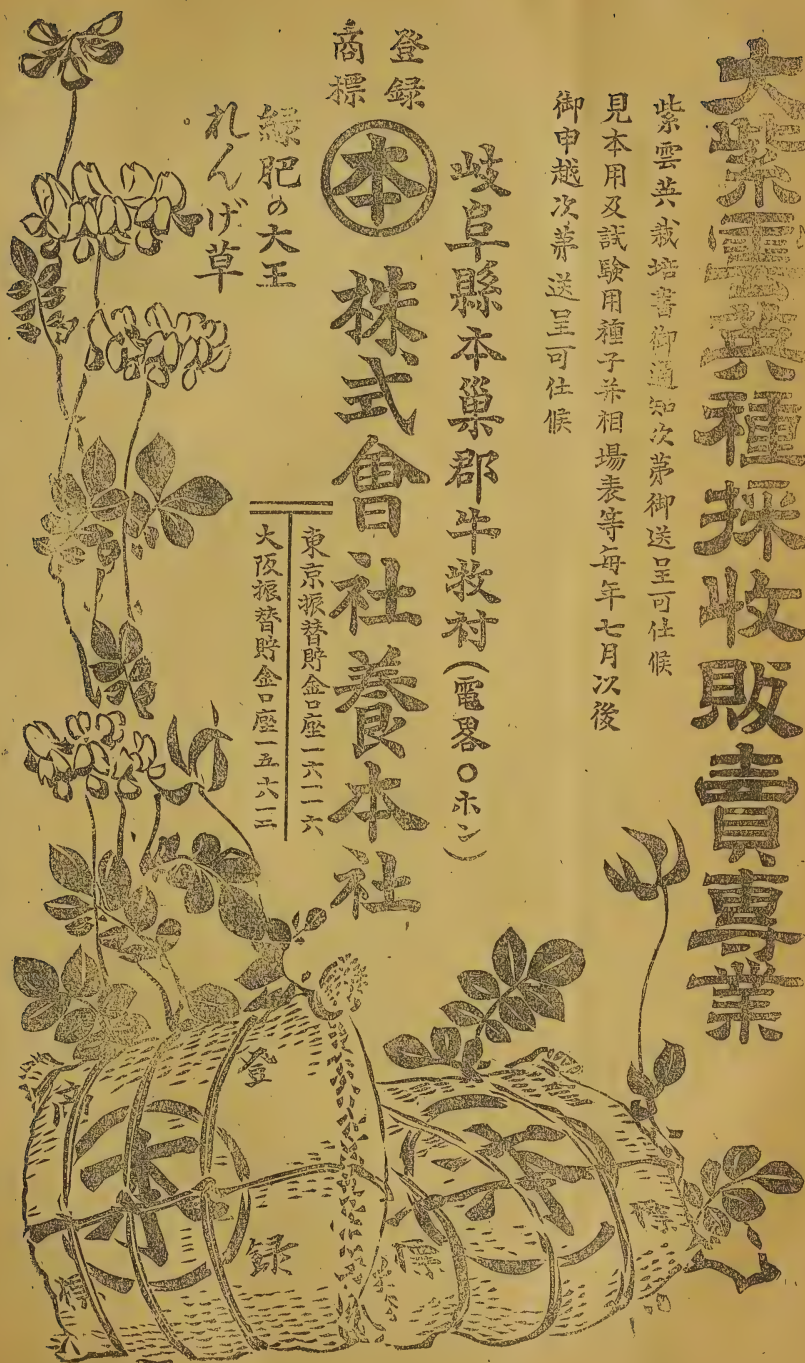 大紫雲英種採收販賣專業
紫雲英栽培書御通知次第御送呈可仕候
見本用及試驗用種子并相場表等每年七月次後
御申越次第送呈可仕候
岐阜縣本巢郡牛牧村(電畧〇ホン)
登録
商標
本
株式會社養本社
東京振替貯金口座一六一一六
大阪振替貯金口座一五六一二
緑肥の大王
れんげ草
登録
商標
本
本
標